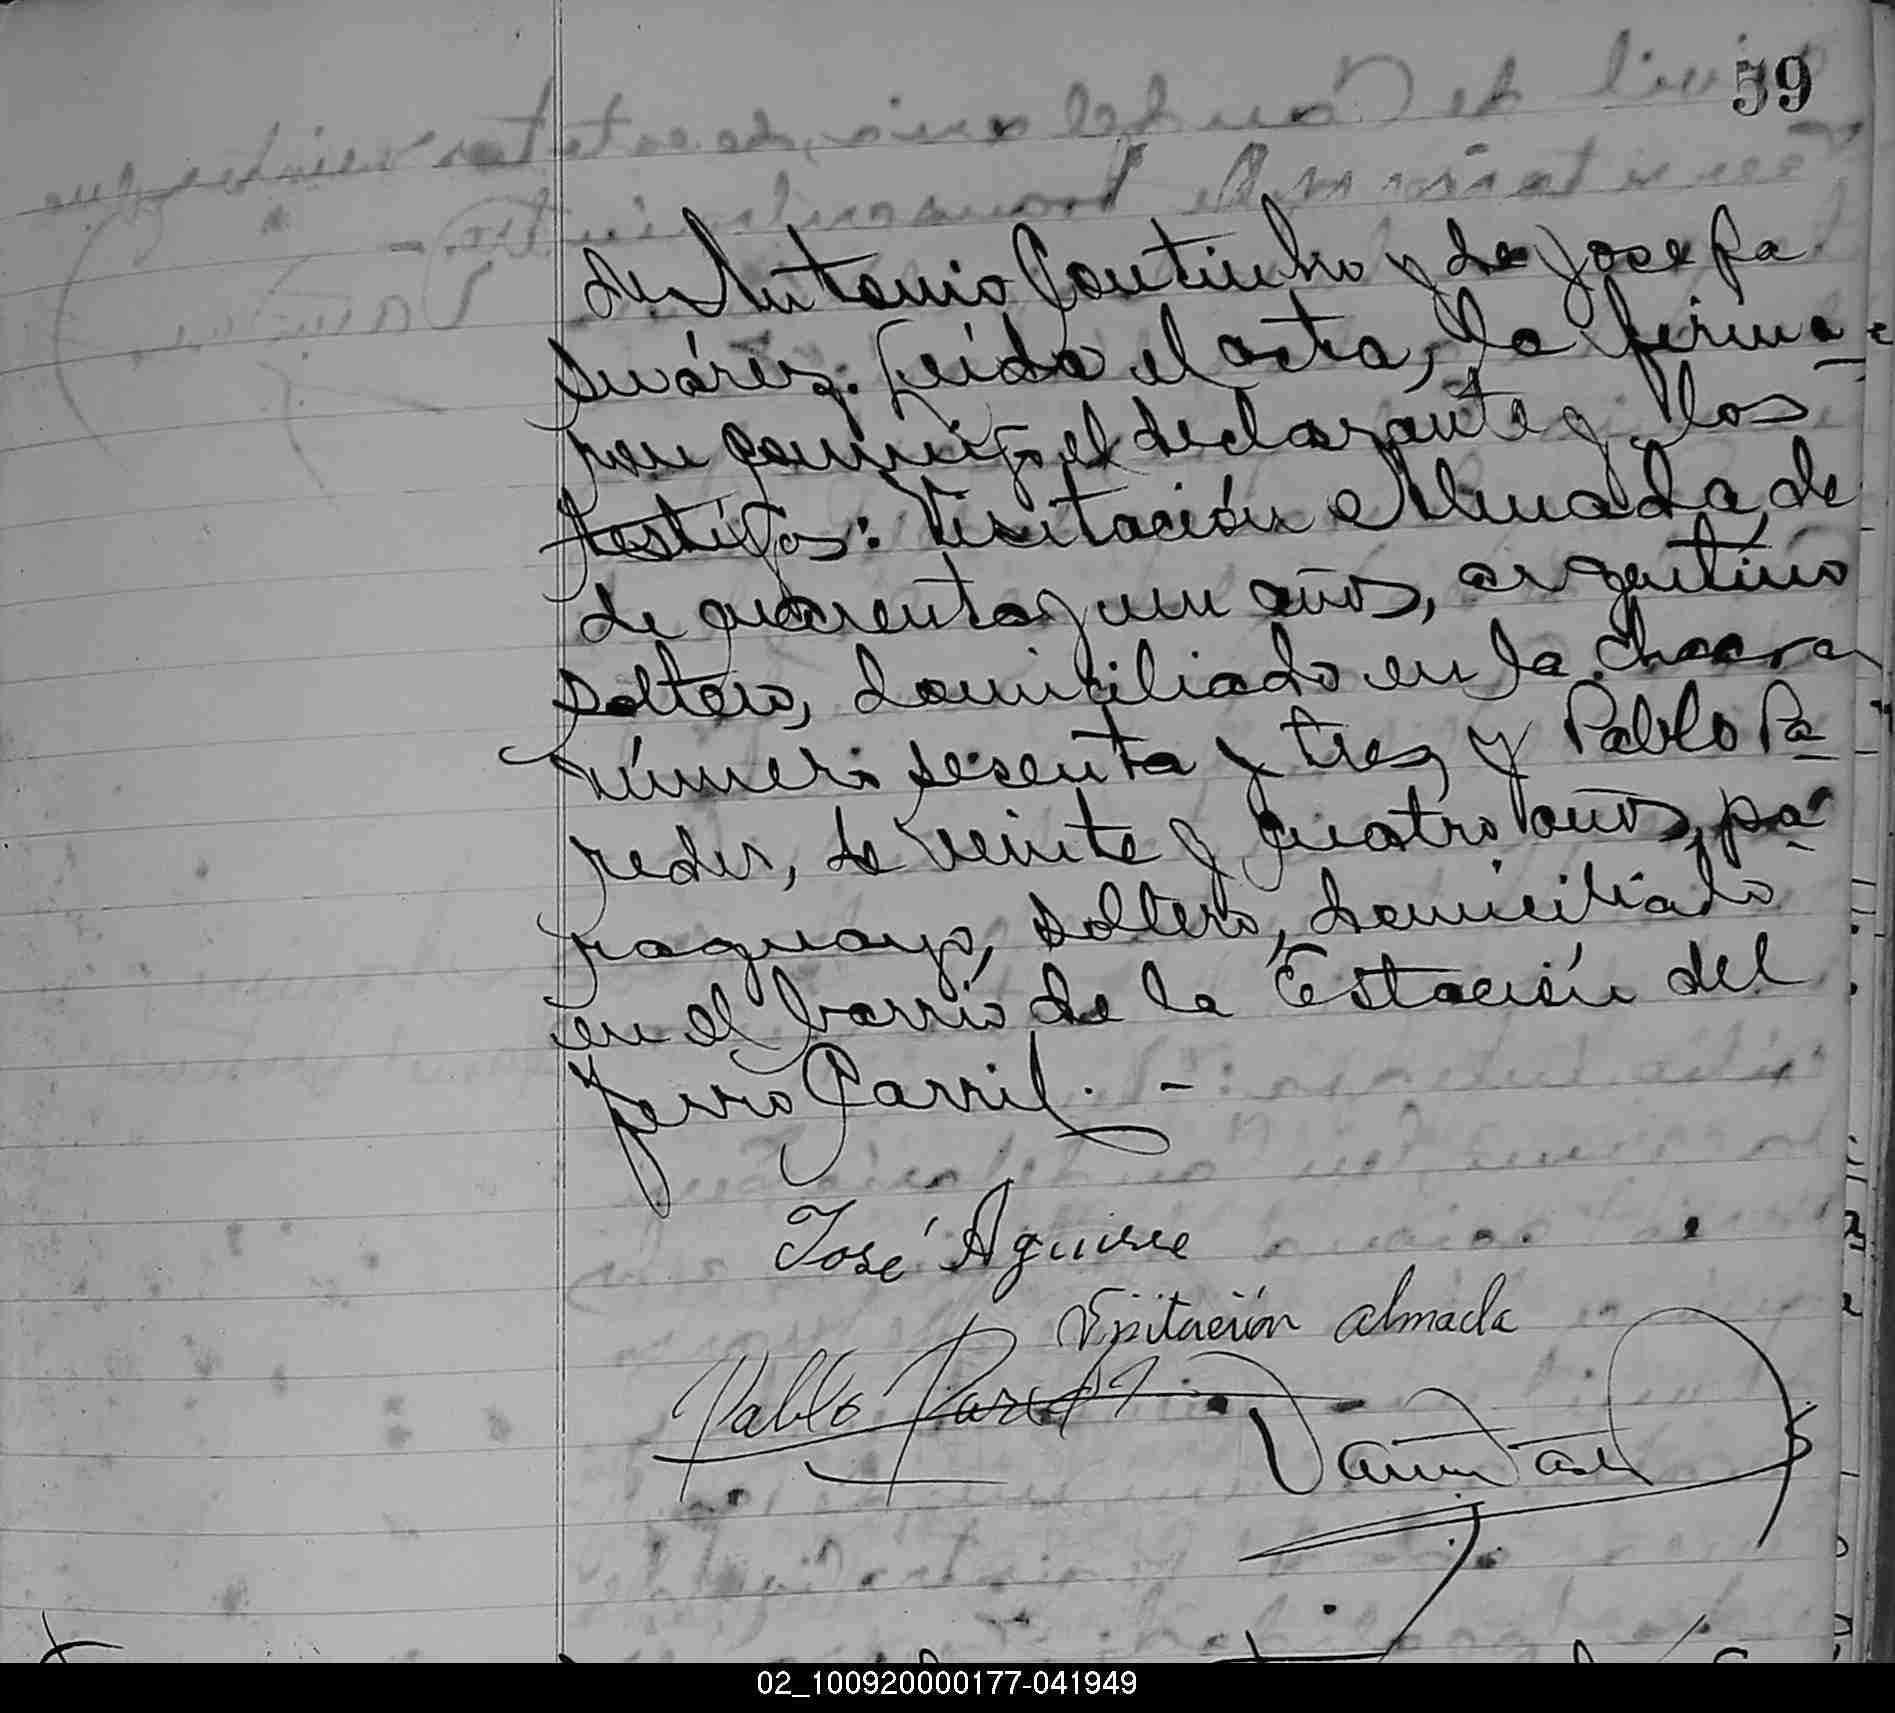 59
de Antonio Coutinho y de Josefa
Suárez. Leída el acta, la firma-
ron conmigo el declarante y los
testigos: Visitación Almada, de
de cuarenta y un años, argentino
soltero, domiciliado en la chacra
número sesenta y tres, y Pablo Pa-
redes, de veinte y cuatro años, pa-
raguayo, soltero, domiciliado
en el barrio de la Estación del
Ferro Carril. -
José Aguirre
Visitación almada
Pablo Paredes
02_100920000177-041949